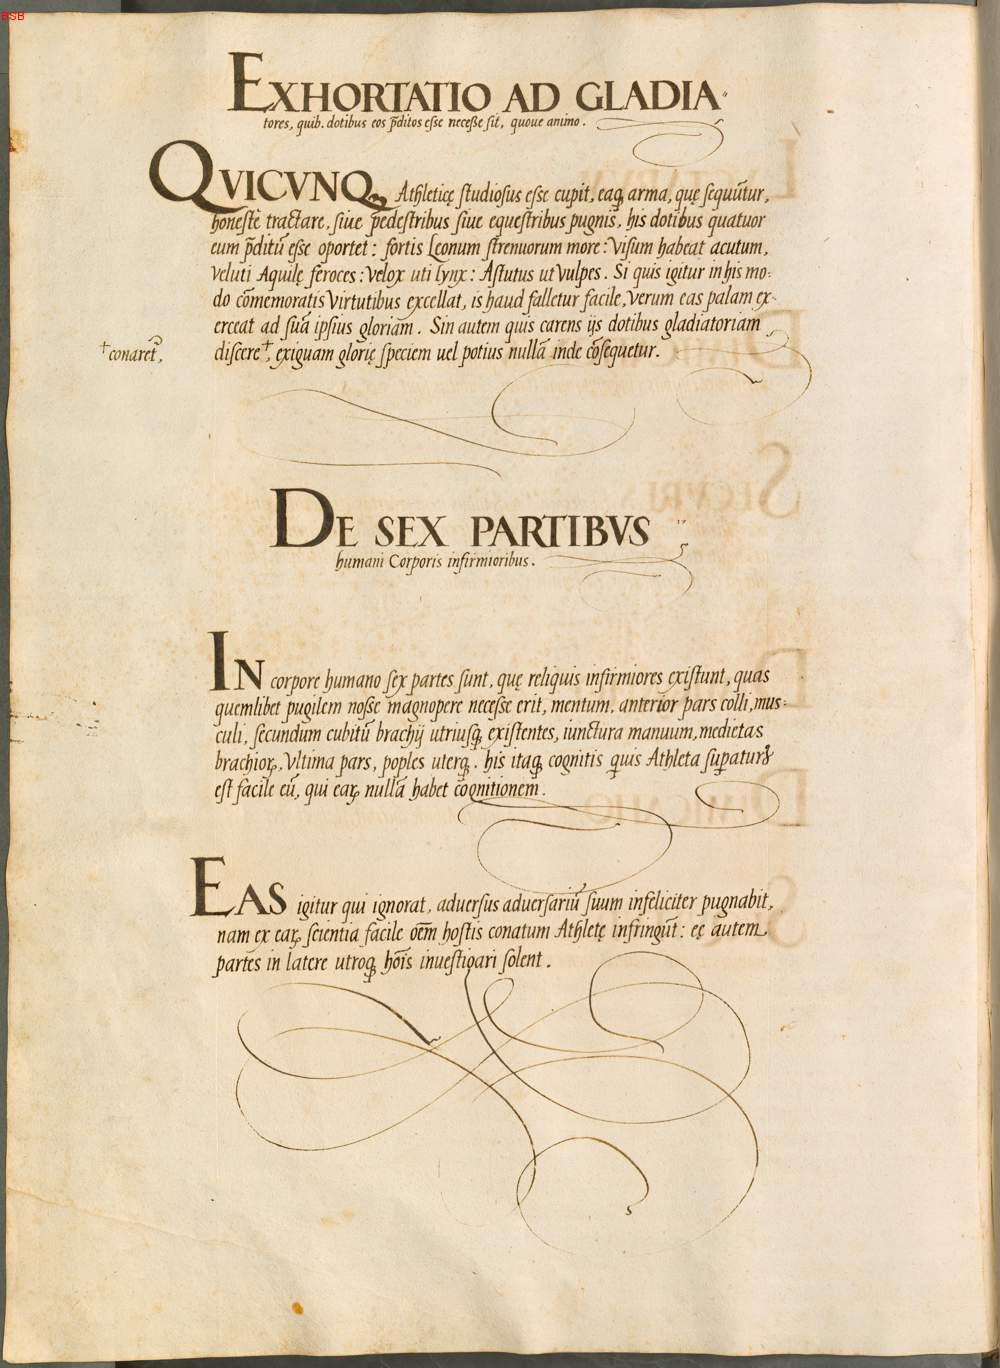 BSB
EXHORTATIO AD GLADIA⸗
tores, quib. dotibus eos p̄ditos esse necesse sit, quoue animo.
QVICVNQꝫ Athleticę studiosus esse cupit, eaqꝫ arma, quę sequūtur,
honestè tractare, siue pedestribus siue equestribus pugnis, his dotibus quatuor
eum p̄ditū esse oportet: fortis Leonum strenuorum more: Visum habeat acutum,
veluti Aquilę feroces: Velox uti lynx: Astutus ut Vulpes. Si quis igitur in his mo⸗
do cōmemoratis Virtutibus excellat, is haud falletur facile, Verum eas palam ex⸗
erceat ad suā ipsius gloriam. Sin autem quis carens ijs dotibus gladiatoriam
†conaret᷒, discere†, exiguam glorię speciem uel potius nullā inde cōsequetur.
DE SEX PARTIBVS
humani Corporis infirmioribus.
IN corpore humano sex partes sunt, quę reliquis infirmiores existunt, quas
quemlibet pugilem nosse magnopere necesse erit, mentum, anterior pars colli, mus⸗
culi, secundum cubitū brachij utriusqꝫ existentes, iunctura manuum, medietas
brachioꝝ, Vltima pars, poples uterqꝫ. his itaqꝫ cognitis quis Athleta supatur
est facile eū, qui eaꝝ nullā habet cognitionem.
EAS igitur qui ignorat, aduersus aduersariū suum infeliciter pugnabit,
nam ex eaꝝ scientia facile oēm hostis conatum Athletę infringūt: eę autem
partes in latere utroqꝫ hōis inuestigari solent.